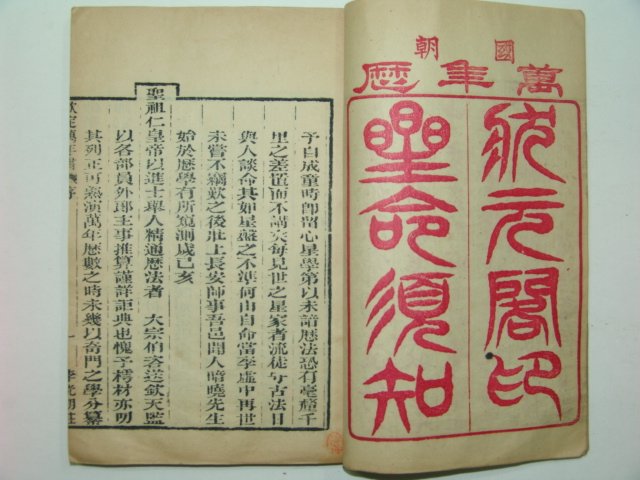 國朝
萬年歷
狀元閣印
星命須知
予自成童時即留心星學第以未諳歷法恐有毫釐千
里之差置而不講矣每見世之星家者流徒守古法日
與人談命其如星盤之不準何由自命當李虛中再世
未嘗不竊歎之後壯上長安師事吾邑聞人暗曉先生
始於歷學有所窺測歲己亥
聖祖仁皇帝以進士舉人精通歷法者 大宗伯咨送欽天監
以各部員外郎主事推算謹詳詎典也愧予樗材亦叨
其列正可熟演萬年歷數之時未幾以奇門之學分纂
欽定萬年書 序 一 李光明莊